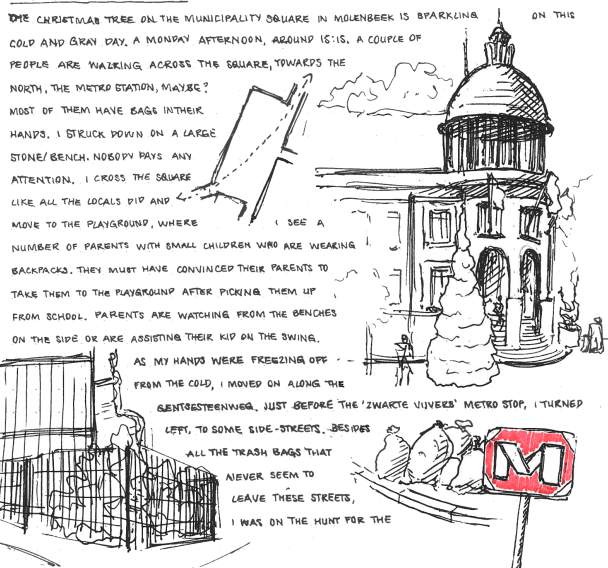 THE CHRISTMAS TREE ON THE MUNICIPALITY SQUARE IN MOLENBEEK IS SPARKLING ON THIS
COLD AND GRAY DAY. A MONDAY AFTERNOON, AROUND 15:15. A COUPLE OF
PEOPLE ARE WALKING ACROSS THE SQUARE, TOWARDS THE
NORTH, THE METRO STATION, MAYBE?
MOST OF THEM HAVE BAGS IN THEIR
HANDS. I STRUCK DOWN ON A LARGE
STONE/BENCH. NOBODY PAYS ANY
ATTENTION. I CROSS THE SQUARE
LIKE ALL THE LOCALS DID AND
MOVE TO THE PLAYGROUND, WHERE I SEE A
NUMBER OF PARENTS WITH SMALL CHILDREN WHO ARE WEARING
BACKPACKS. THEY MUST HAVE CONVINCED THEIR PARENTS TO
TAKE THEM TO THE PLAYGROUND AFTER PICKING THEM UP
FROM SCHOOL. PARENTS ARE WATCHING FROM THE BENCHES
ON THE SIDE OR ARE ASSISTING THEIR KID ON THE SWING.
AS MY HANDS WERE FREEZING OFF
FROM THE COLD, I MOVED ON ALONG THE
GENTSESTEENWEG. JUST BEFORE THE 'ZWARTE VIJVERS' METRO STOP, I TURNED
LEFT, TO SOME SIDE-STREETS. BESIDES
ALL THE TRASH BAGS THAT
NEVER SEEM TO
LEAVE THESE STREETS,
I WAS ON THE HUNT FOR THE
M